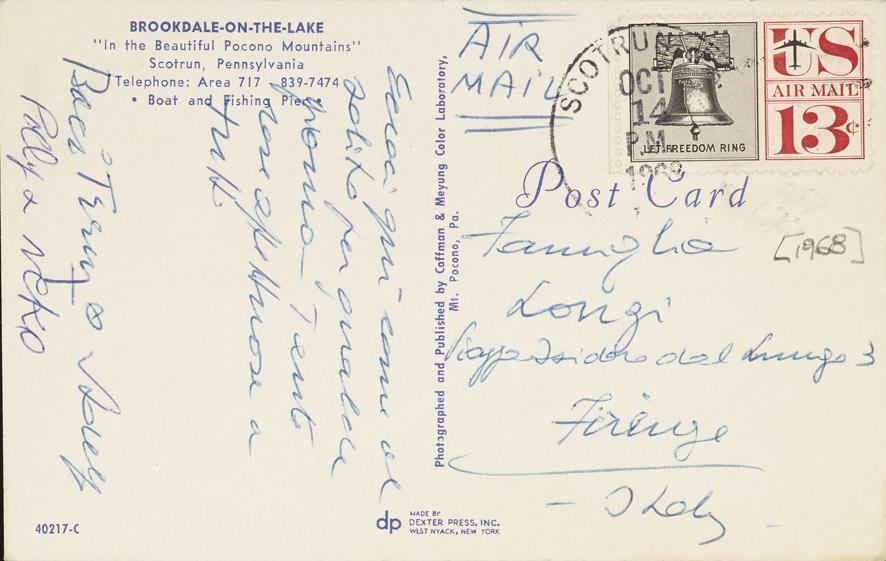 BROOKDALE-ON-THE-LAKE
"In the Beautiful Pocono Mountains"
Scotrun, Pennsylvania
Telephone: Area 717 - 839-7474
• Boat and Fishing Pier •
Eccoci qui come al
solito per qualche
giorno. Tante
cose affettuose a
tutti
Baci
Polly & Mirko
Photographed and Published by Coffman & Meyung Color Laboratory,
Mt. Pocono, Pa.
AIR
MAIL
SCOTRUN
OCT
14
P.M.
1968
LET FREEDOM RING
US
AIR MAIL
13¢
Post Card
Famiglia
Longi
Piazza Isidoro del Lungo 3
Firenze
- Italy -
[1968]
40217-C
dp
MADE BY
DEXTER PRESS, INC.
WEST NYACK, NEW YORK